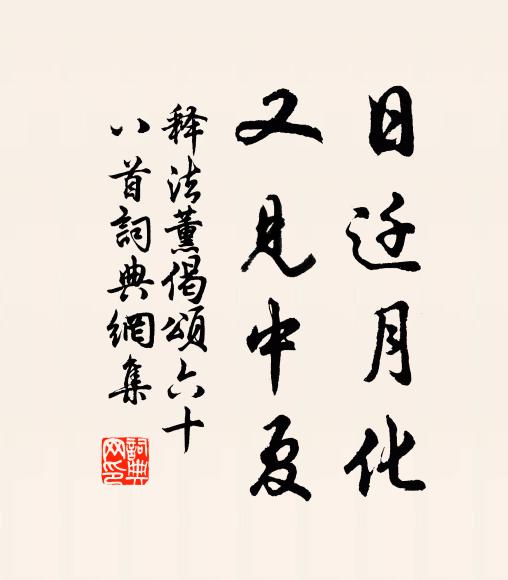 日迁月化
又见中夏
释法薰偈颂六十
八首詞典網集
詞典网印